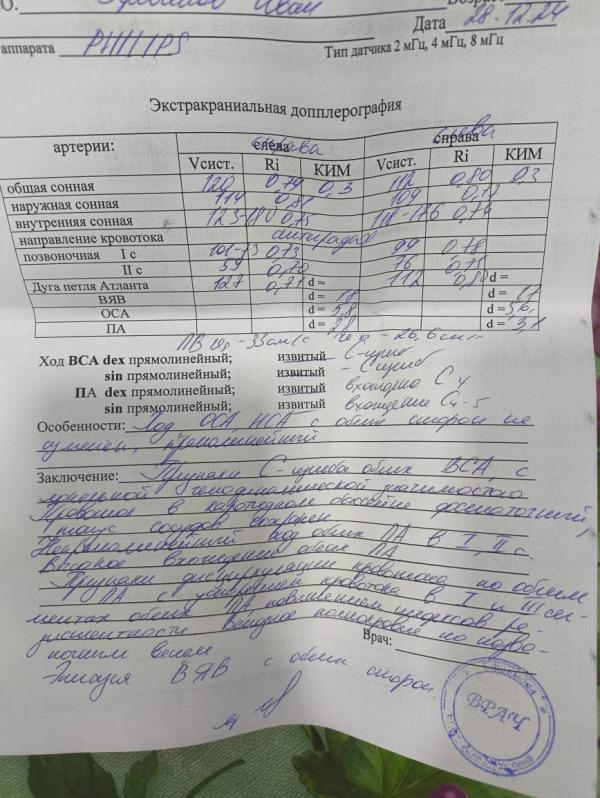 О. Иван
Дата 28.12.24
аппарата PHILIPS Тип датчика 2 мГц, 4 мГц, 8 мГц
Экстракраниальная допплерография
артерии: слева справа справа слева
Vсист. Ri КИМ Vсист. Ri КИМ
общая сонная 120 0,79 0,3 112 0,80 0,3
наружная сонная 114 0,81 104
внутренняя сонная 123-180 0,75 118-176 0,74
направление кровотока антеградное
позвоночная I с 0,73 99 0,78
II с 59 0,70 76 0,75
Дуга петля Атланта 127 0,71 d = 112 0,80 d =
ВЯВ d = 18 d =
ОСА d = 5,8 d = 5,6
ПА d = 2,8 d = 3,1
ПВ 33 см/с 26,6 см/с
Ход ВСА dex прямолинейный; извитый С-изгиб
sin прямолинейный; извитый - С изгиб
ПА dex прямолинейный; извитый вхождение С4
sin прямолинейный; извитый вхождение С4-5
Особенности: Ход ОСА, НСА с обеих сторон не
изменен, прямолинейный
Заключение: Признаки С-изгиба обеих ВСА, с
локальной гемодинамической значимостью
Кровоток в каротидном бассейне достаточный,
тонус сосудов сохранен.
Непрямолинейный ход обеих ПА в I, II с.
Высокое вхождение обеих ПА
Признаки дисциркуляции кровотока по обеим
ПА с усилением кровотока в I и III сег-
ментах обеих ПА, повышением индексов ре-
зистентности Венозное полнокровие по позво-
ночным венам
Врач:
Эктазия ВЯВ с обеих сторон.
ВРАЧ